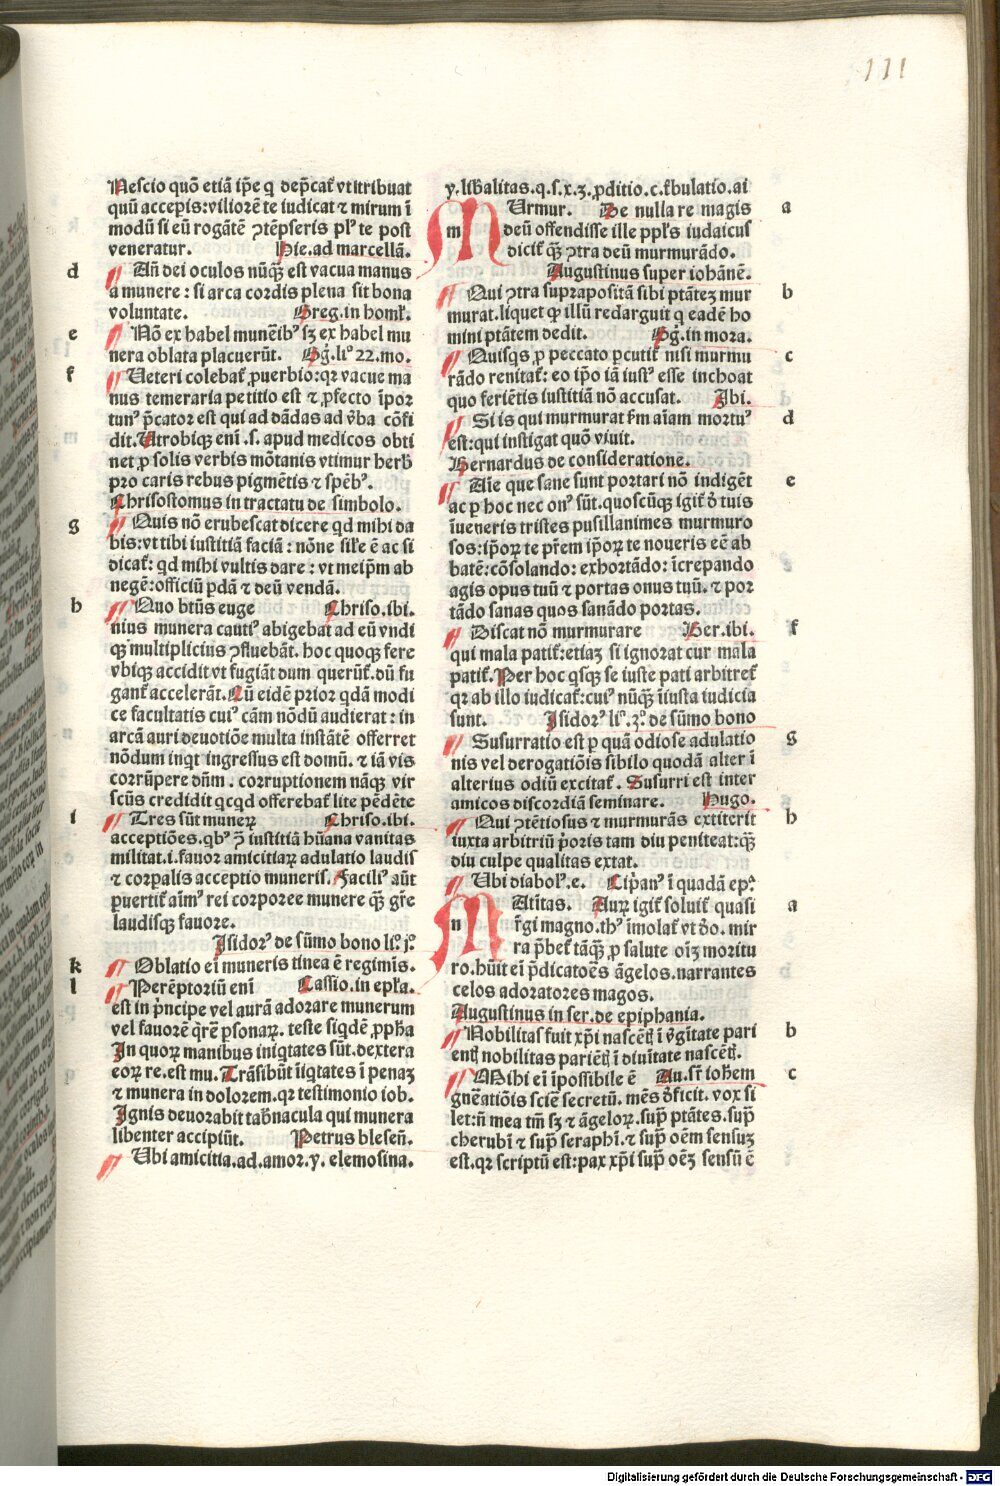 111
Nescio quō etiā ip̄e q dep̄cat᷑ vt ītribuat
quū accep̄is: viliorē te iudicat ⁊ mirum ī
modū si eū rogātē ꝯtēpseris plꝰ te post
veneratur. Hie. ad marcellā.
d Añ dei oculos nūq̄ est vacua manus
a munere: si arca cordis plena sit bona
voluntate. Greg. in homt̄.
e Nō ex habel munēibꝰ sꝫ ex habel mu
nera oblata placuerūt. Gḡ. liº 22. mo.
f Veteri colebat᷑ ꝓuerbio: qꝛ vacue ma
nus temeraria petitio est ⁊ ꝓfecto īpor
tunꝰ p̄cator est qui ad dādas ad v̄ba cōfi
dit. Utrobiqꝫ eni .s. apud medicos obti
net ꝓ solis verbis mōtanis vtimur herb̄
pro caris rebus pigmētis ⁊ spēbꝰ.
Chrisostomus in tractatu de simbolo.
g Quis nō erubescat dicere qd mihi da
bis: vt tibi iustitiā faciā: nōne sil̄e ē ac si
dicat᷑: qd mihi vultis dare: vt meip̄m ab
negē: officiū p̄dā ⁊ deū vendā.
h Quo btūs euge Chriso. ibi.
nius munera cautiꝰ abigebat ad eū vndi
qꝫ multiplicius ꝯfluebāt. hoc quoqꝫ fere
vbiqꝫ accidit vt fugiāt dum querūt᷑. dū fu
gant᷑ accelerāt. Cū eidē prior qdā modi
ce facultatis cuiꝰ cām nōdū audierat: in
arcā auri deuotiōe multa instātē offerret
nōdum inqt ingressus est domū. ⁊ iā vis
corrūpere dn̄m. corruptionem nāqꝫ vir
scūs credidit qcqd offerebat᷑ lite pēdēte
i Tres sūt munerꝝ Chriso. ibi.
acceptiōes. qbꝰ ꝯ̄ iustitiā hūana vanitas
militat. i. fauor amicitiaꝝ adulatio laudis
⁊ corpalis acceptio muneris. Faciliꝰ aūt
puertit᷑ aīmꝰ rei corporee munere qꝫ gr̄e
laudisqꝫ fauore.
Isidorꝰ de sūmo bono liº. jº.
k Oblatio ei muneris tinea ē regimīs.
l Perēptoriū eni Cassio. in epl̄a.
est in p̄ncipe vel aurā adorare munerum
vel fauorē q̄rē psonaꝝ. teste siqdē ꝓph̄a
In quoꝝ manibus iniqtates sūt. dextera
eoꝝ re. est mu. Trāsibūt īiqtates ī penaꝫ
⁊ munera in dolorem. qꝛ testimonio iob.
Ignis deuorabit tab̄nacula qui munera
libenter accipiūt. Petrus blesen̄.
Ubi amicitia. ad. amor. y. elemosina.
y. lib̄alitas. q. s. x. ʒ. ꝓditio. c. t̄bulatio. ai
a mUrmur. De nulla re magis
deū offendisse ille ppl̄s iudaicus
dicit᷑ qꝫ ꝯtra deū murmurādo.
Augustinus super iohānē.
b Qui ꝯtra suprapositā sibi ptātēꝫ mur
murat. liquet ꝙ illū redarguit q eadē ho
mini ptātem dedit. Gḡ. in mora.
c Quisqs ꝓ peccato pcutit᷑ nisi murmu
rādo renitat᷑: eo ip̄o iā iustꝰ esse inchoat
quo feriētis iustitiā nō accusat. Ibi.
d Si is qui murmurat fm̄ aīam mortuꝰ
est: qui instigat quō viuit.
Bernardus de consideratione.
e Aīe que sane sunt portari nō indigēt
ac p hoc nec onꝰ sūt. quoscūqꝫ igit᷑ ð tuis
īueneris tristes pusillanimes murmuro
sos: ip̄oꝝ te pr̄em ip̄oꝝ te noueris eē ab
batē: cōsolando: exhortādo: īcrepando
agis opus tuū ⁊ portas onus tuū. ⁊ por
tādo sanas quos sanādo portas.
f Discat nō murmurare Ber. ibi.
qui mala patit᷑: etiaꝫ si ignorat cur mala
patit᷑. Per hoc qsqꝫ se iuste pati arbitret᷑
qꝛ ab illo iudicat᷑: cuiꝰ nūqꝫ īiusta iudicia
sunt. Isidorꝰ liº. ʒº. de sūmo bono
g Susurratio est p quā odiose adulatio
nis vel derogatiōis sibilo quodā alter ī
alterius odiū excitat᷑. Susurri est inter
amicos discordiā seminare. Hugo.
h Qui ꝯtētiosus ⁊ murmurās extiterit
iuxta arbitriū p̄oris tam diu peniteat: qꝫ
diu culpe qualitas extat.
Ubi diabolꝰ. e. Cip̄anꝰ ī quadā epº.
a nAtītas. Auꝝ igit᷑ soluit᷑ quasi
r̄gi magno. thꝰ imolat᷑ vt ðo. mir
ra p̄bet᷑ tāqꝫ ꝓ salute oīꝫ moritu
ro. hūit ei p̄dicatoēs āgelos. narrantes
celos adoratores magos.
Augustinus in ser. de epiphania.
b Nobilitas fuit xp̄i nascētꝭ ī v̄gītate pari
entꝭ nobilitas pariētꝭ ī diuītate nascētꝭ.
c Mihi ei īpossibile ē Au. sr̄ ioh̄em
gnēatiōis sciē secretū. mēs ðficit. vox si
let: n̄ mea tm̄ sꝫ ⁊ āgeloꝝ. sup̄ ptātes. sup̄
cherubī ⁊ sup̄ seraphī. ⁊ sup̄ oēm sensuꝫ
est. qꝛ scriptū est: pax xp̄i sup̄ oēꝫ sensū ē
Digitalisierung gefördert durch die Deutsche Forschungsgemeinschaft - DFG